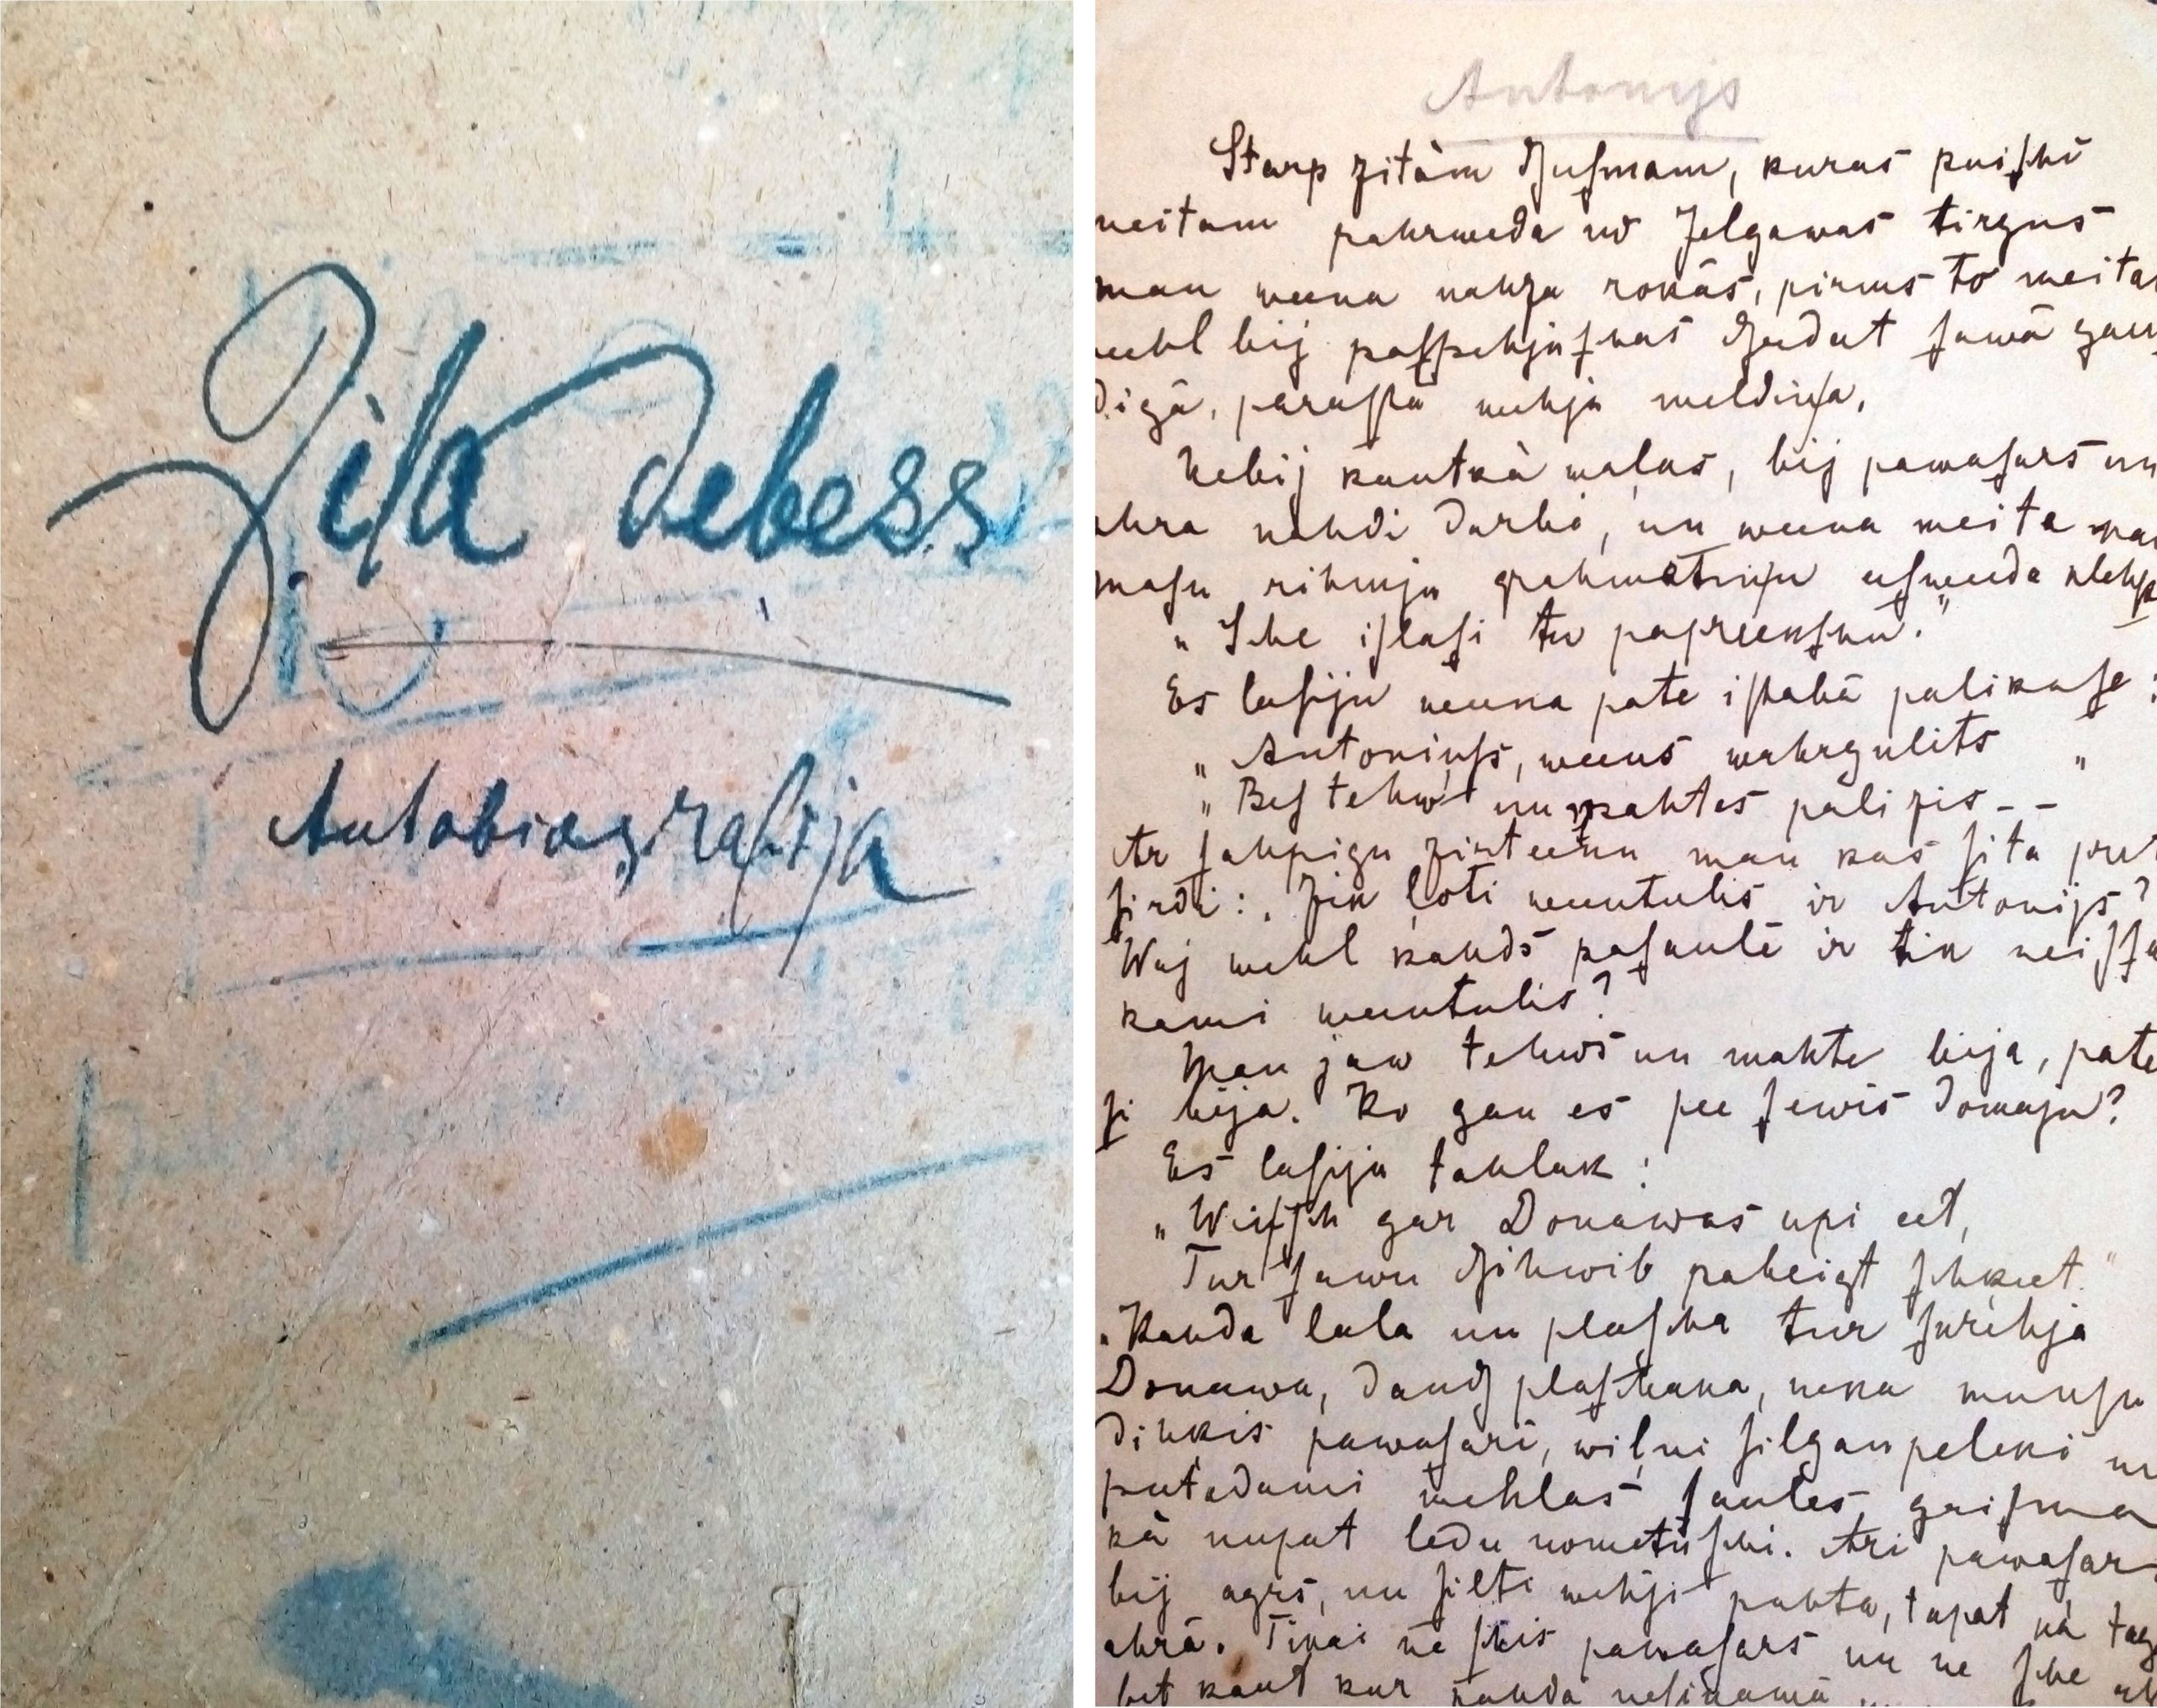 Zila debess
Autobiografija
Antonijs
Starp zitām dzeſmam, kuras puiſchi
meitam pahrweda no Jelgawas tirgus
man weena nahza rokās, pirms to meitas
wehl bij paſpehjuſchas dzeedat ſawā gau
digā, paraſtā wehja meldiņa.
Nebij kautkā waļas, bij pawaſars un
ahra darbi, un weena meita man
maſu rihmju grahmatiņu eeſweeda klehpī
„Sche iſlaſi tu papreekſchu.“
Es laſiju weena pate iſtabā palikuſe:
„Antonijs, weens wahrgulits „
„Beſ tehwa un mahtes palizis--
Ar ſahpigu zirteenu man kas ſita pret
ſirdi: „Zik ļoti weentulis ir Antonijs?
Waj wehl kahds paſaulē ir tik neiſſa
kami weentulis?
Man jau tehws un mahte bija, pate
ſi bija. Ko gan es pee ſewis domaju?
Es laſiju tahlak:
„Wiņſch gar Donawas upi eet,
Tur ſawu dzihwib pabeigt ſchkeet.“
„Kahda lela un plaſcha tur ſkrehja
Donawa, daudz plaſchaka, neka muhſu
dihkis pawaſarī, wiļņi ſilganpeleki un
putodami wehlas ſaules gaiſma
kā nupat ledu nometuſchi. Ari pawaſars
bij agrs, un ſilti wehji puhta, tapat kā tag
ahrā. Tikai ne ſchis pawaſars un ne ſche
bet kaut kur kahdā neſinamā